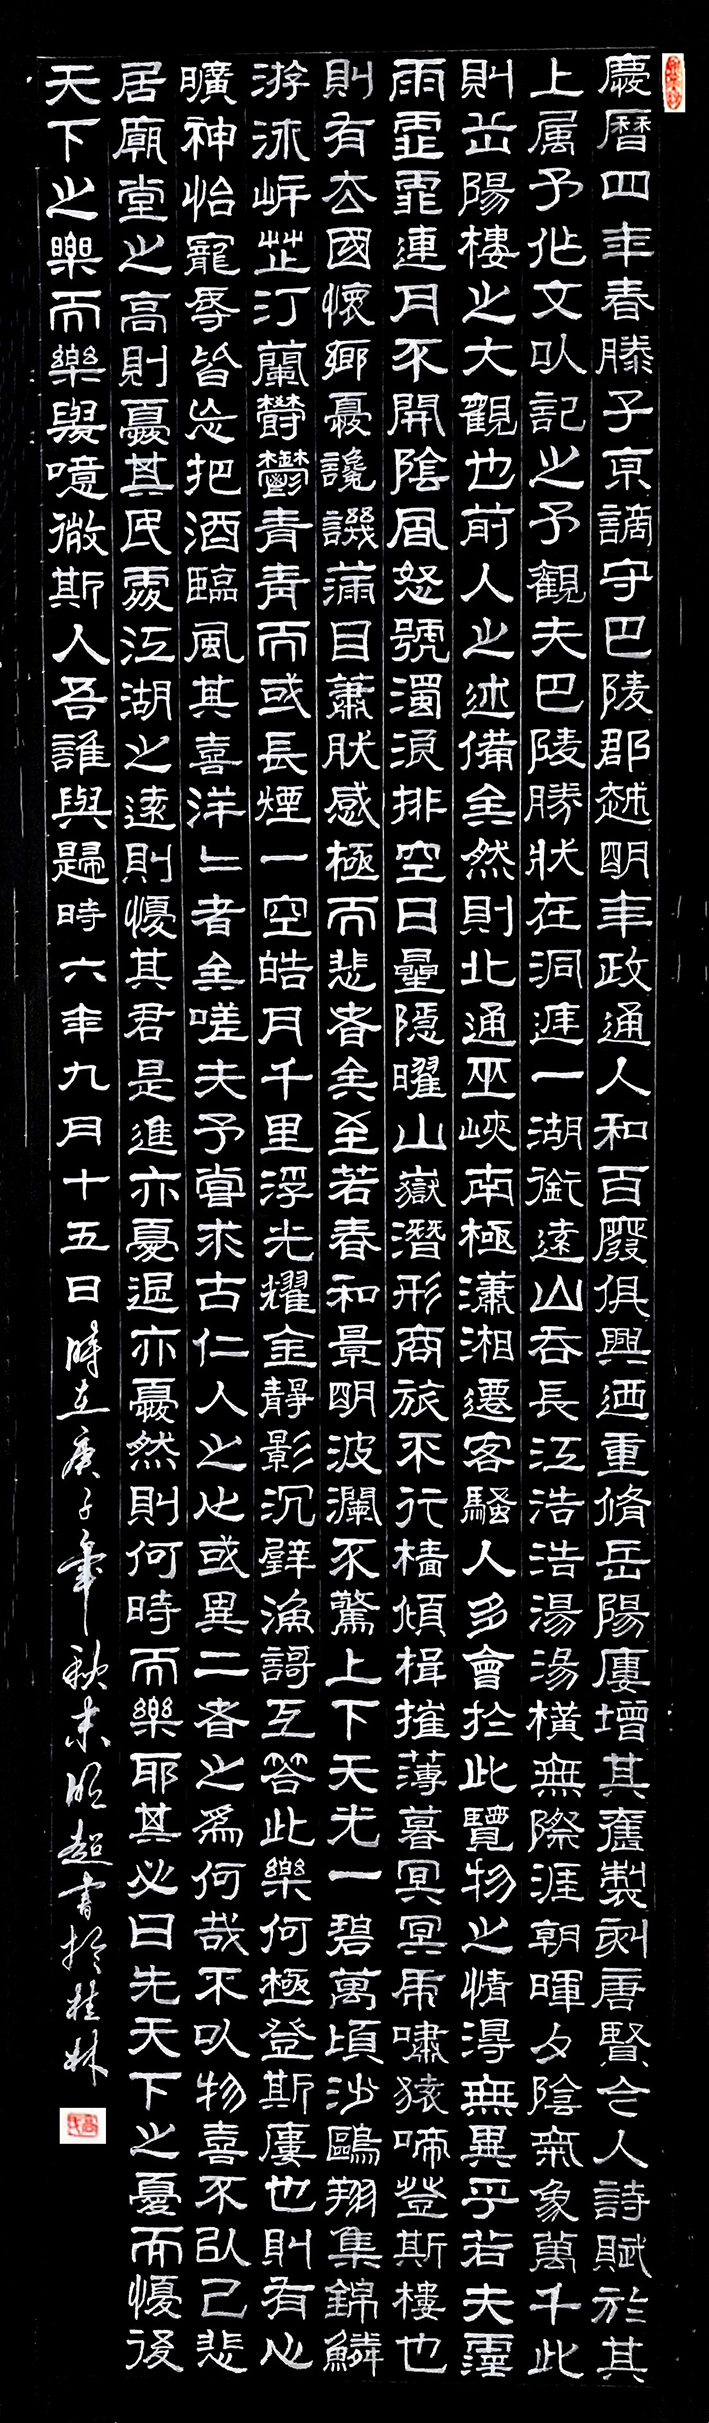 慶曆四年春滕子京謫守巴陵郡越明年政通人和百廢俱興迺重脩岳陽廔增其舊製刻唐賢今人詩賦於其
上属予作文以記之予觀夫巴陵勝狀在洞庭一湖銜遠山吞長江浩浩湯湯橫無際涯朝暉夕陰氣象萬千此
則岳陽樓之大觀也前人之述備矣然則北通巫峽南極瀟湘遷客騷人多會於此覽物之情得無異乎若夫霪
雨霏霏連月不開陰風怒號濁浪排空日星隱曜山嶽潛形商旅不行檣傾楫摧薄暮冥冥虎嘯猿啼登斯樓也
則有去國懷鄉憂讒譏滿目蕭肰感極而悲者矣至若春和景明波瀾不驚上下天光一碧萬頃沙鷗翔集錦鱗
游泳岸芷汀蘭鬱鬱青青而或長煙一空皓月千里浮光耀金靜影沉璧漁謌互答此樂何極登斯廔也則有心
曠神怡寵辱皆忘把酒臨風其喜洋二者矣嗟夫予嘗求古仁人之心或異二者之為何哉不以物喜不以己悲
居廟堂之高則憂其民處江湖之遠則懮其君是進亦憂退亦憂然則何時而樂耶其必曰先天下之憂而懮後
天下之樂而樂與噫微斯人吾誰與歸時六年九月十五日時在庚子年秋末明超書於桂林